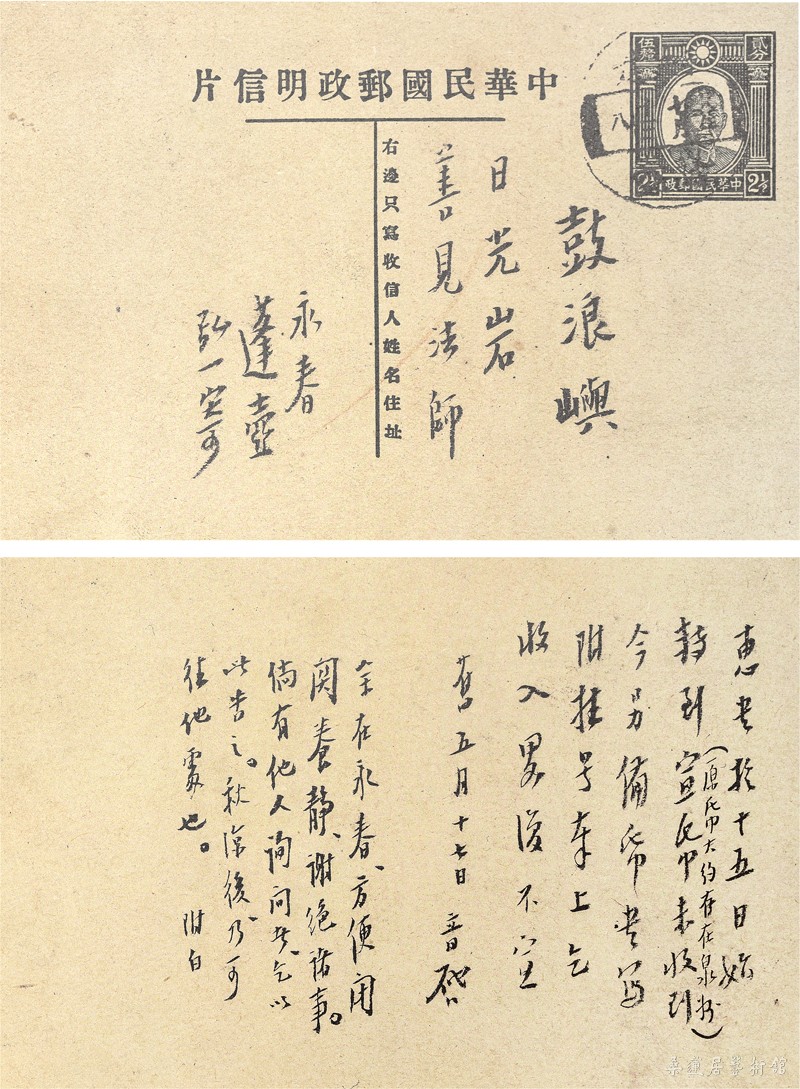 中華民國郵政明信片
伍釐
貳分
2½
中華民國郵政
2½
八
鼓浪嶼
日光岩
善見法師
右邊只寫收信人姓名住址
永春
蓬壺
弘一
惠書於十五日始
轉到宣紙
未收到
(原紙大約存在泉州)
今另備紙書寫
附挂号奉上乞
收入畧復不宣
舊五月十七日 音啓
余在永春、方便閉
関養静、謝絕諸事。
倘有他人詢問者、乞以
此告之。秋凉後、乃可
往他處也。 附白